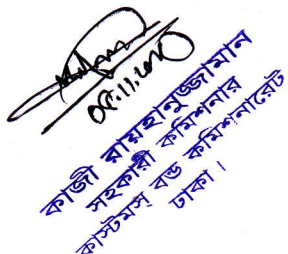 ০৫.১১.২০১০
কাজী রায়হানুজ্জামান
সহকারী কমিশনার
কাস্টমস্ বন্ড কমিশনারেট
ঢাকা।